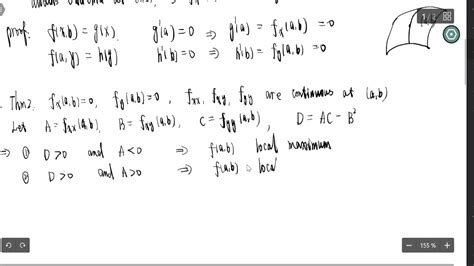 proof: f(x,b) = g(x) g'(a) = 0 ⇒ g'(a) = fx(a,b) = 0
f(a,y) = h(y) h'(b) = 0 ⇒ h'(b) = fy(a,b) = 0
Thm2. fx(a,b)=0, fy(a,b)=0, fxx, fxy, fyy are continuous at (a,b)
Let A = fxx(a,b), B = fxy(a,b), C = fyy(a,b), D = AC − B²
⇒ ① D>0 and A<0 ⇒ f(a,b) local maximum
② D>0 and A>0 ⇒ f(a,b) local
1
155 %